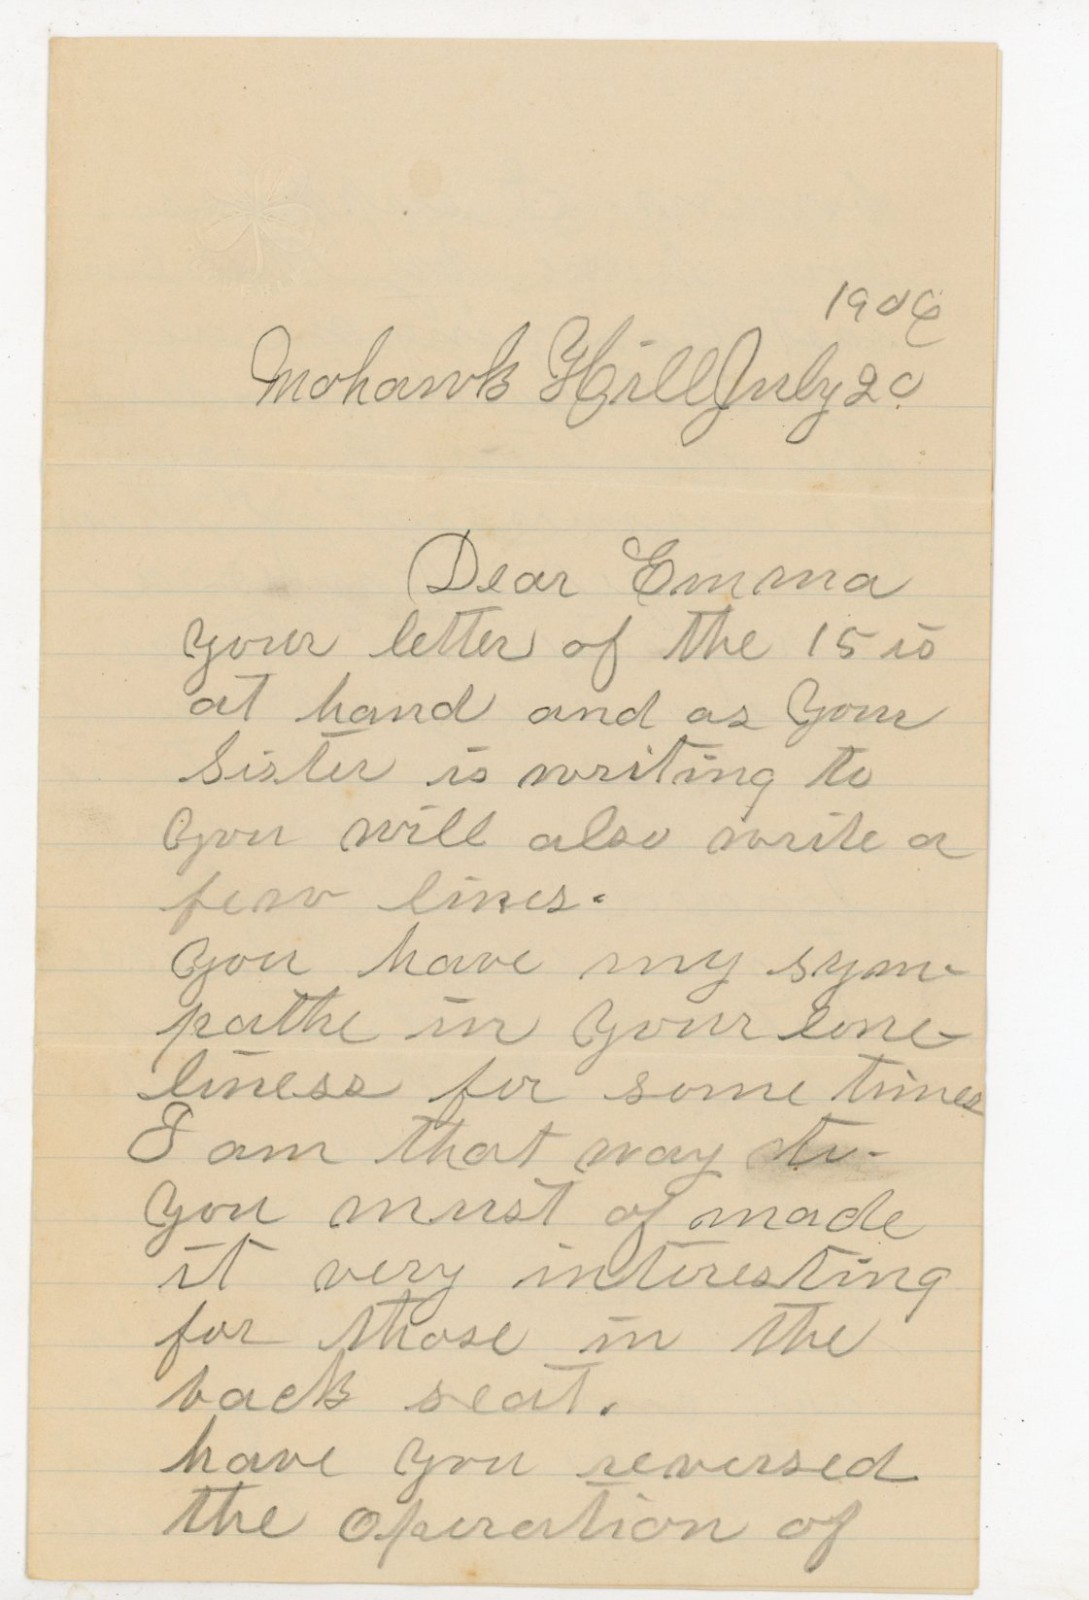 1906
Mohawk Hill July 20
Dear Emma
your letter of the 15 is
at hand and as your
sister is writing to
you will also write a
few lines.
you have my sym-
pathe in your lone-
liness for some times
I am that way to-
you must of made
it very interesting
for those in the
back seat.
have you reversed
the operation of